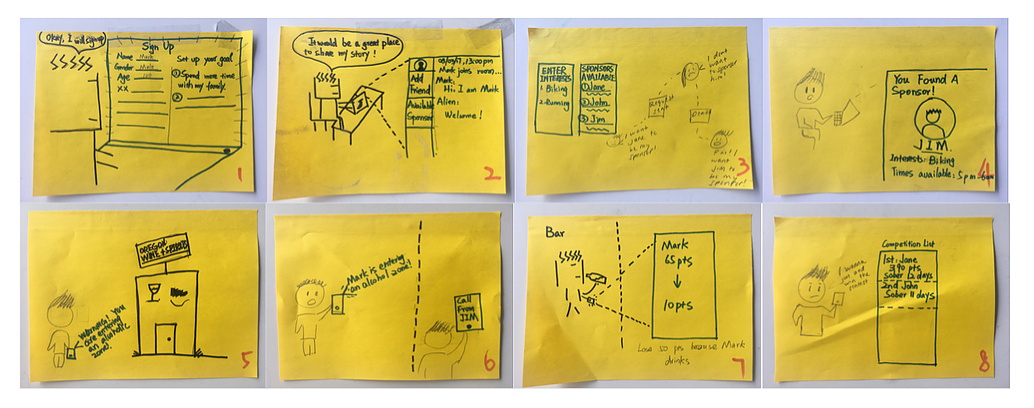 Okay, I will sign up
Sign Up
Name Mark
Gender Male
Age
XX
Set up your goal
① Spend more time
with my family.
②
1
It would be a great place
to share my story!
Add
Friend
Available
Sponsor
Mark joins room...
Mark:
Hi, I am Mark
Alien:
Welcome!
2
ENTER
INTERESTS
1. Biking
2. Running
SPONSORS
AVAILABLE
① Jane
② John
③ Jim
Request
sent
Deny
I don't
want to sponsor
him!
I want
Jane to
be my
sponsor!
Fine! I
want
Jim to
be my
sponsor!
3
You Found A
Sponsor!
JIM
Interests: Biking
Times available: 5pm-6am
4
OREGON
WINE + SPIRITS
WARNING! You
are entering
an alcoholic
zone!
5
Mark is entering
an alcohol zone!
Call
From
JIM
6
Bar
Mark
65 pts
10 pts
Lose 50 pts because Mark
drinks
7
Competition List
1st: Jane
3190 pts
sober 12 days
2nd John
Sober 11 days
I wanna
join and
the contest
8